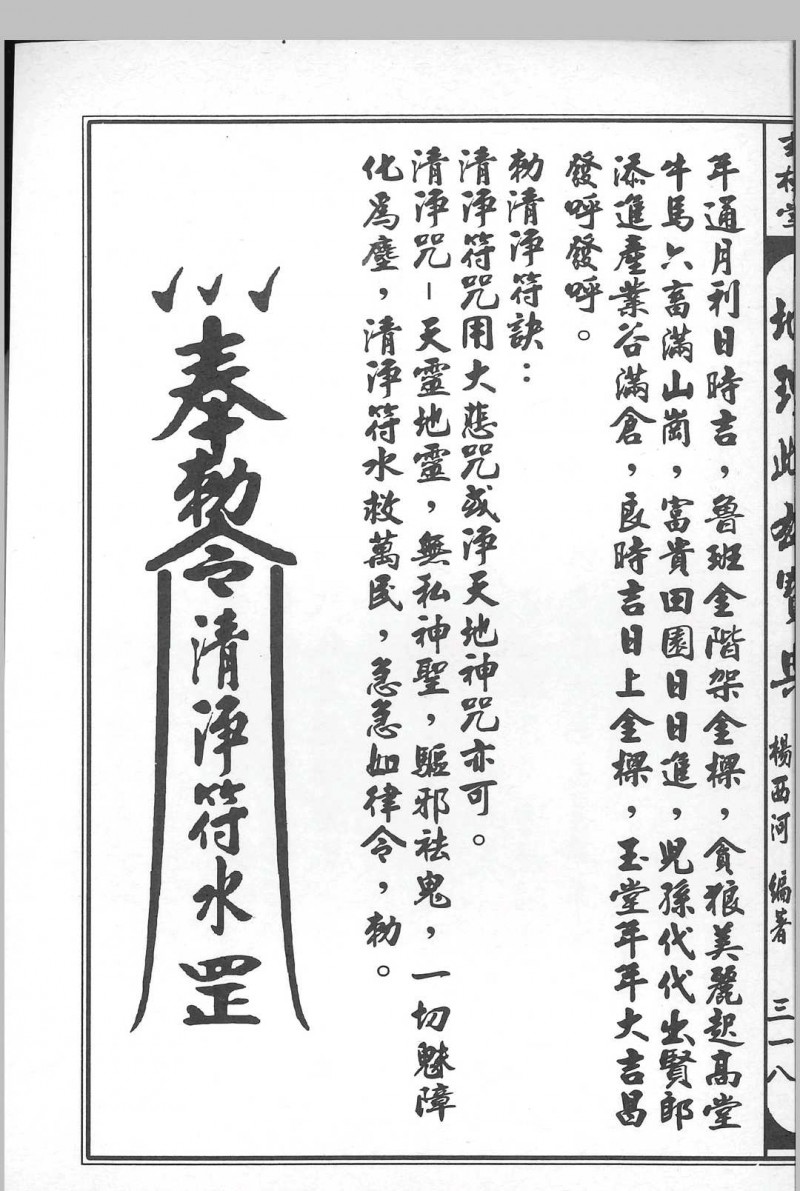 年通月利日時吉，魯班金階架金樑，貪狼美麗起高堂
牛馬六畜滿山崗，富貴田園日日進，兒孫代代出賢郎
添進產業谷滿倉，良時吉日上金樑，玉堂年年大吉昌
發呼發呼。
勅清淨符訣：
清淨符咒用大悲咒或淨天地神咒亦可。
清淨咒－天靈地靈，無私神聖，驅邪祛鬼，一切魅障
化為塵，清淨符水救萬民，急急如律令，勅。
奉勅令清淨符水罡
楊西河 編著
三一八